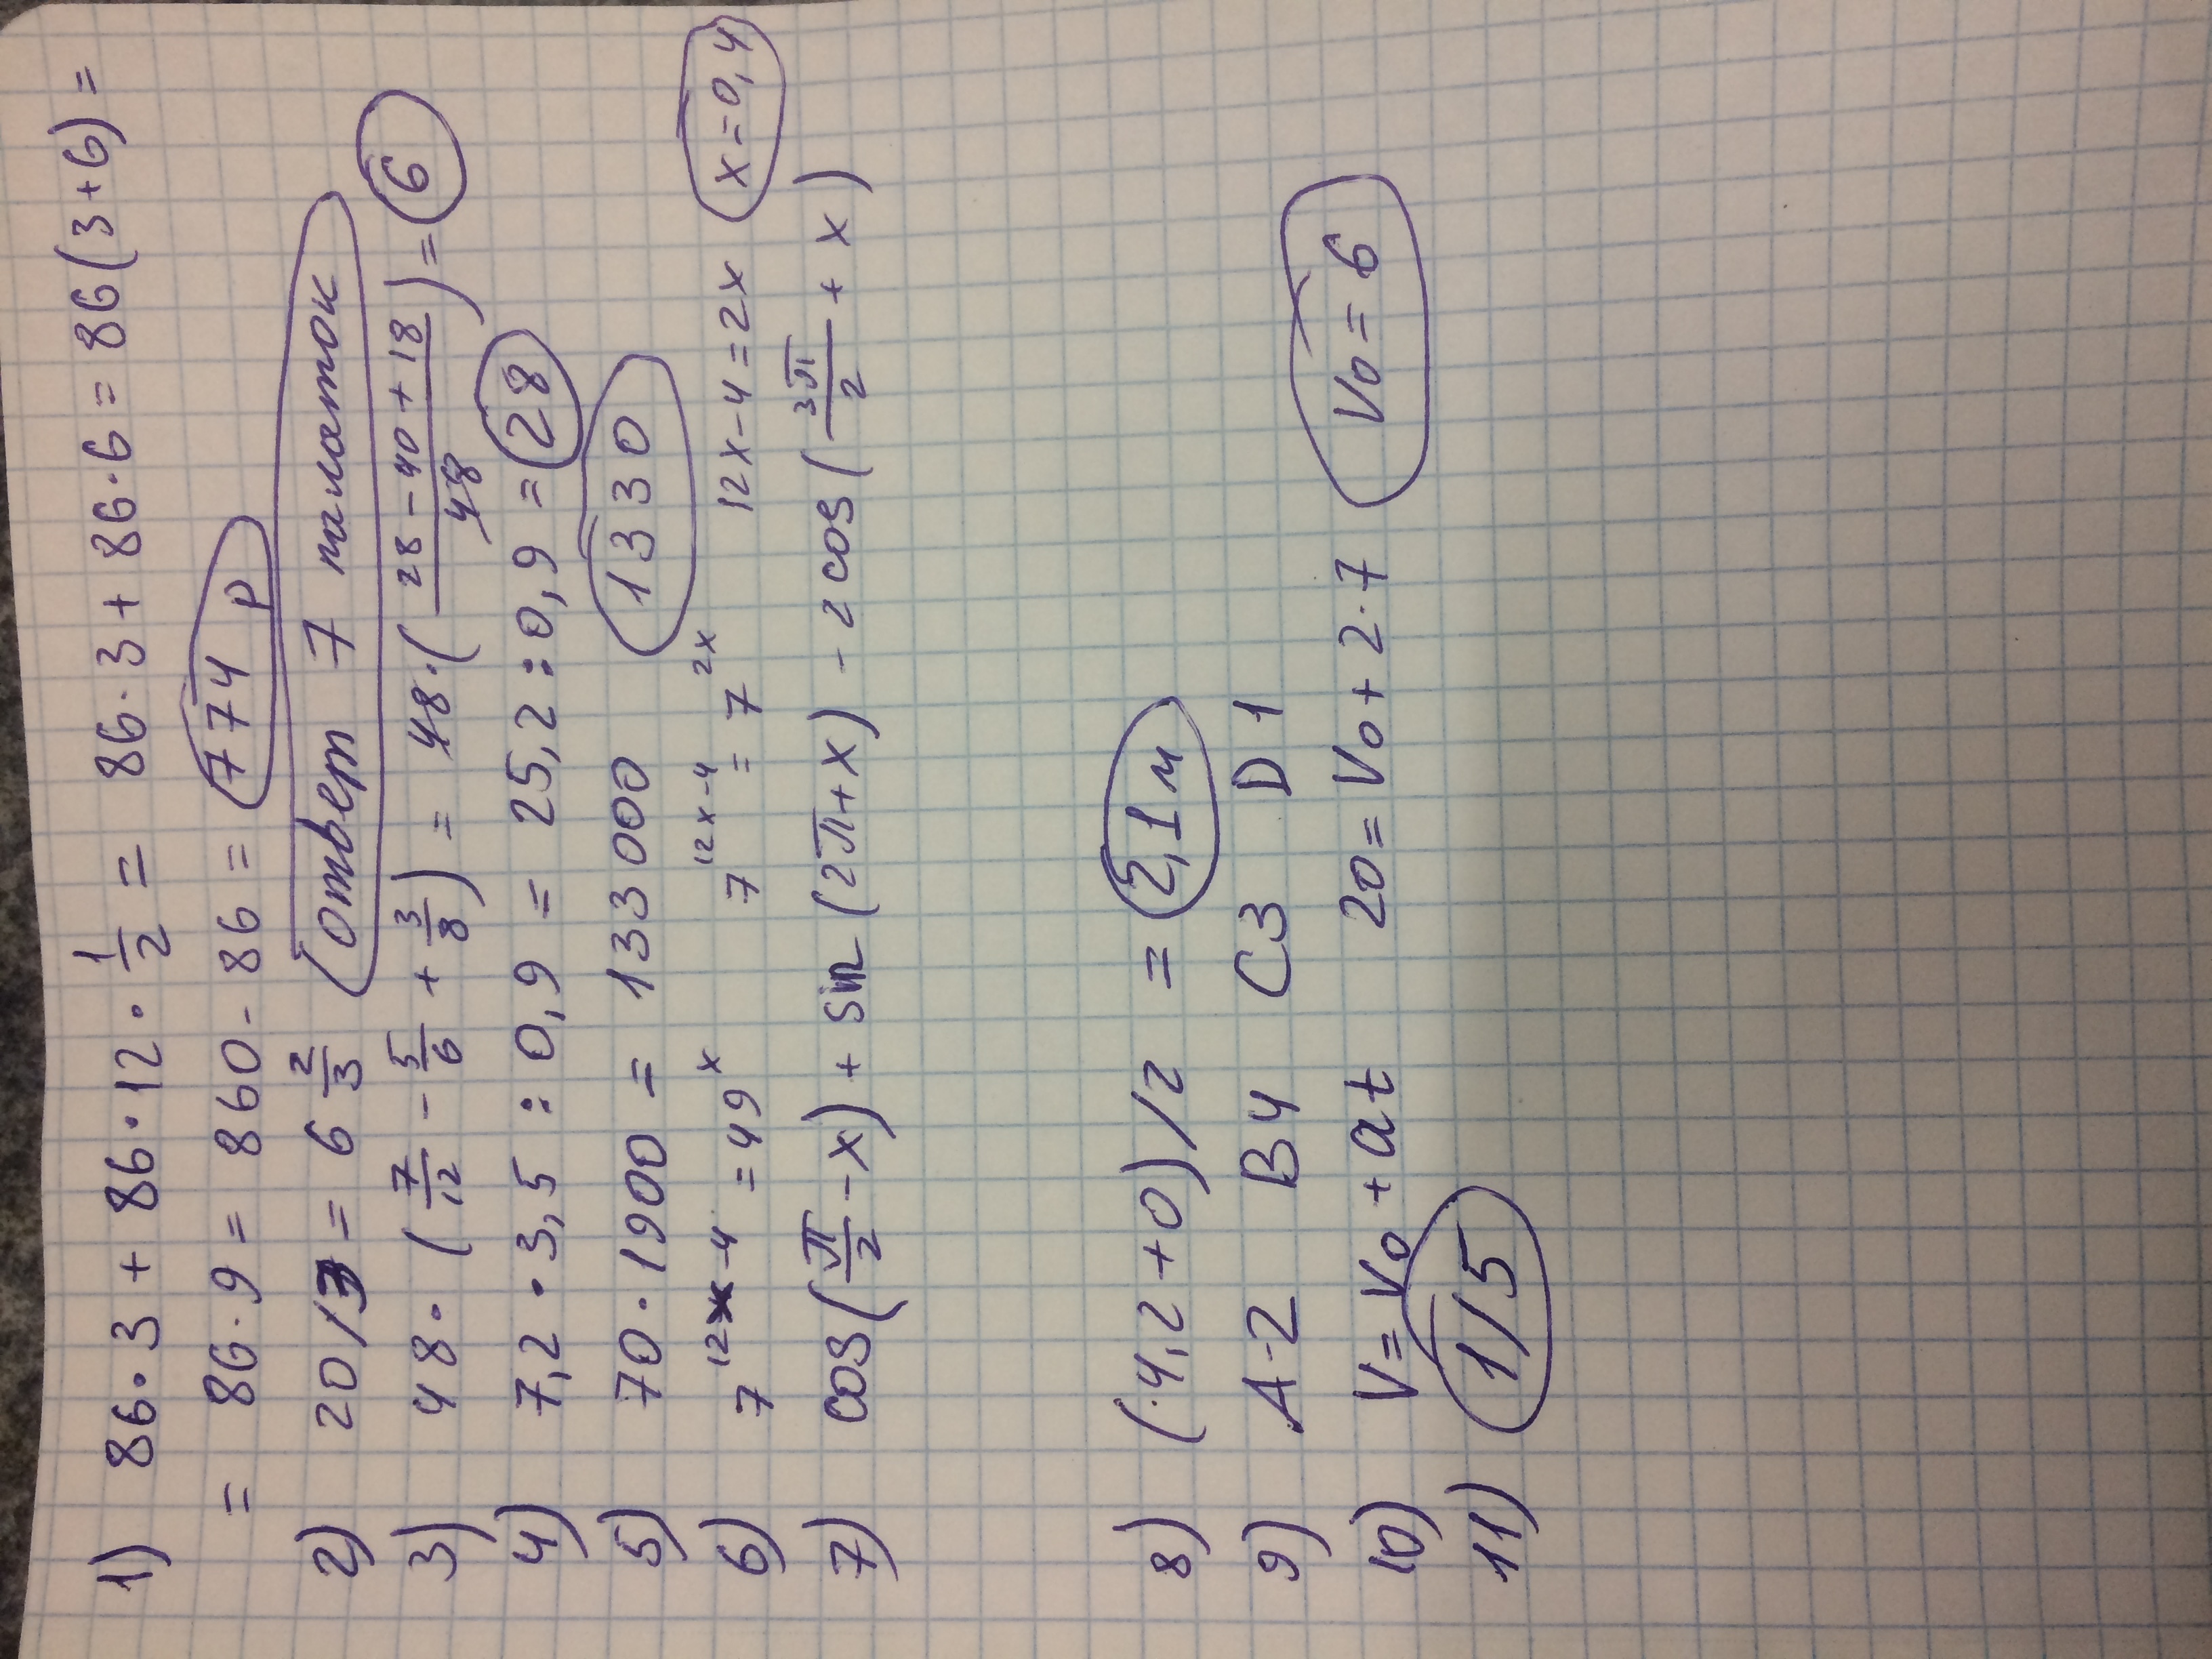 1) 86·3 + 86·12·1/2 = 86·3 + 86·6 = 86(3+6) =
= 86·9 = 860 - 86 = 774 р
2) 20/3 = 6 2/3 ответ 7 палаток
3) 48·(7/12 - 5/6 + 3/8) = 48·(28-40+18/48) = 6
4) 7,2·3,5 : 0,9 = 25,2 : 0,9 = 28
5) 70·1900 = 133000 1330
6) 7^(12x-4) = 49^x 7^(12x-4) = 7^(2x) 12x-4=2x x=0,4
7) cos(π/2 - x) + sin(2π+x) - 2cos(3π/2 + x)
8) (4,2+0)/2 = 2,1м
9) A-2 B4 C3 D1
10) V=V₀+at 20=V₀+2·7 V₀=6
11) 1/5